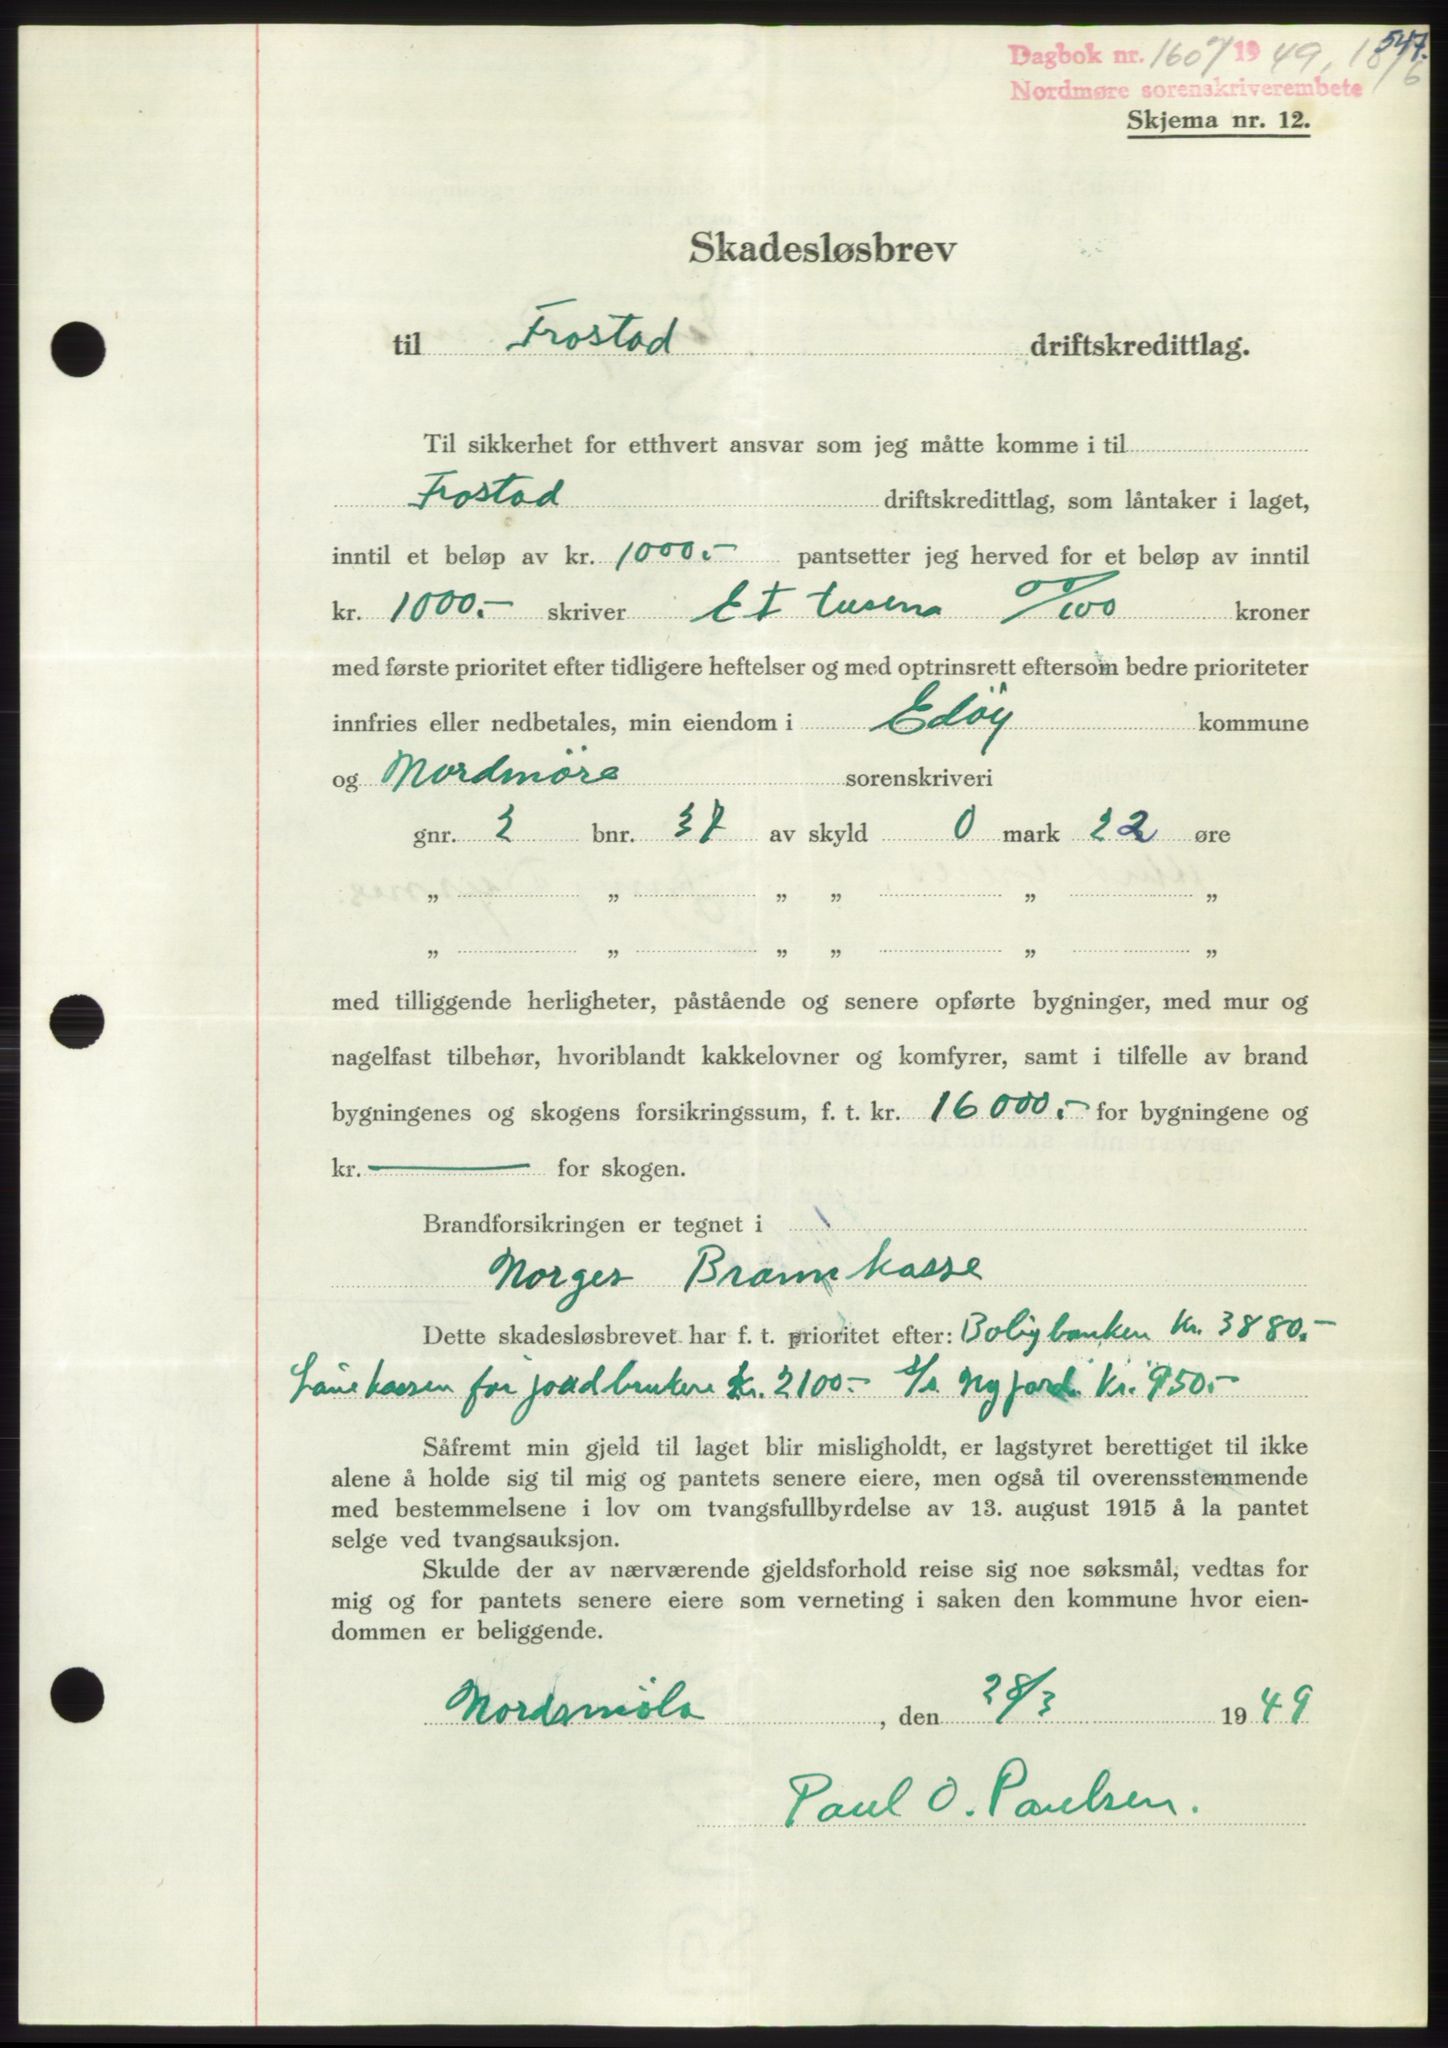 547.
Dagbok nr. 1607/1949, 18/6
Nordmøre sorenskriverembete
Skjema nr. 12.
Skadesløsbrev
til Frostad driftskredittlag.
Til sikkerhet for etthvert ansvar som jeg måtte komme i til
Frostad driftskredittlag, som låntaker i laget,
inntil et beløp av kr. 1000.- pantsetter jeg herved for et beløp av inntil
kr. 1000.- skriver Et tusen 00/100 kroner
med første prioritet efter tidligere heftelser og med optrinsrett eftersom bedre prioriteter
innfries eller nedbetales, min eiendom i Edöy kommune
og Nordmöre sorenskriveri
gnr. 2 bnr. 37 av skyld 0 mark 22 øre
„ „ „ „ „ „
„ „ „ „ „ „
med tilliggende herligheter, påstående og senere opførte bygninger, med mur og
nagelfast tilbehør, hvoriblandt kakkelovner og komfyrer, samt i tilfelle av brand
bygningenes og skogens forsikringssum, f. t. kr. 16000.- for bygningene og
kr. — for skogen.
Brandforsikringen er tegnet i
Norges Brannkasse
Dette skadesløsbrevet har f. t. prioritet efter: Boligbanken kr. 3880.-
Lånekassen for jordbrukere kr. 2100.- S/L Ny jord kr. 950.-
Såfremt min gjeld til laget blir misligholdt, er lagstyret berettiget til ikke
alene å holde sig til mig og pantets senere eiere, men også til overensstemmende
med bestemmelsene i lov om tvangsfullbyrdelse av 13. august 1915 å la pantet
selge ved tvangsauksjon.
Skulde der av nærværende gjeldsforhold reise sig noe søksmål, vedtas for
mig og for pantets senere eiere som verneting i saken den kommune hvor eien-
dommen er beliggende.
Nordsmöla, den 28/3 1949
Paul O. Paulsen.